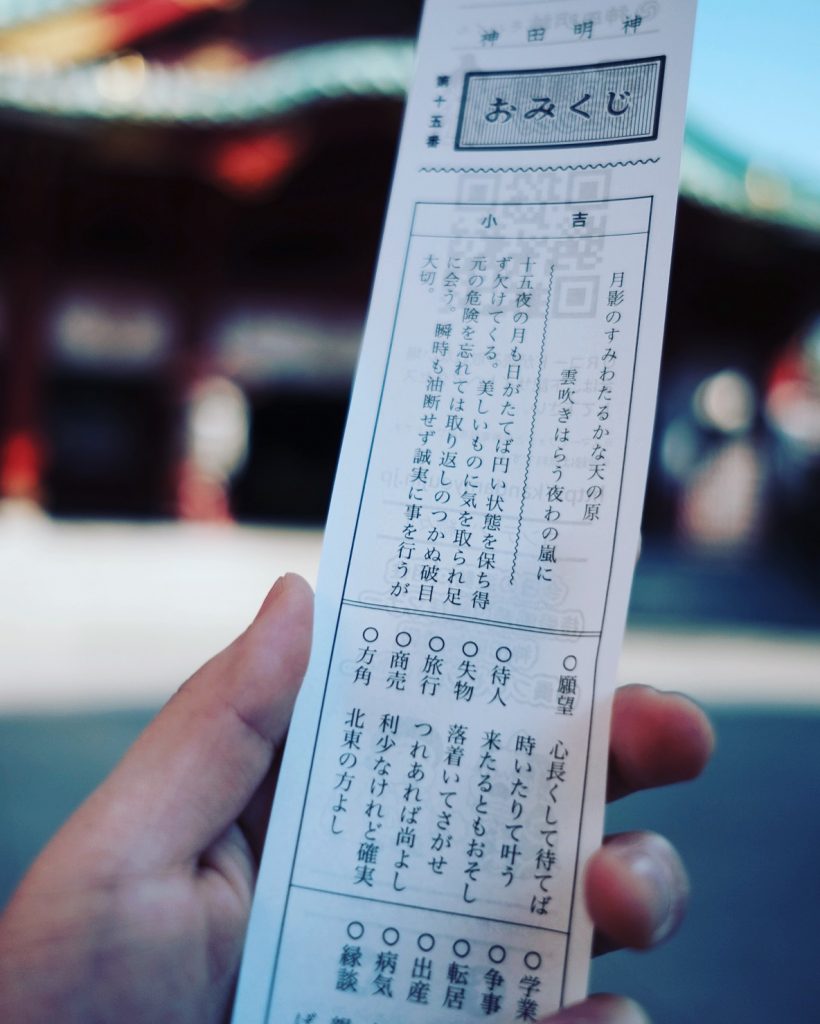 神田明神
第十五番
おみくじ
小吉
月影のすみわたるかな天の原
雲吹きはらう夜わの嵐に
十五夜の月も日がたてば円い状態を保ち得
ず欠けてくる。美しいものに気を取られ足
元の危険を忘れては取り返しのつかぬ破目
に会う。瞬時も油断せず誠実に事を行うが
大切。
○願望 心長くして待てば
時いたりて叶う
○待人 来たるともおそし
○失物 落着いてさがせ
○旅行 つれあれば尚よし
○商売 利少なけれど確実
○方角 北東の方よし
○学業
○争事
○転居
○出産
○病気
○縁談